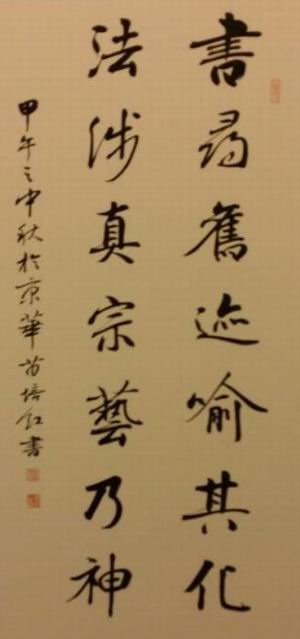 書尋舊迹喻其化
法涉真宗藝乃神
甲午之中秋於京華苗培红書